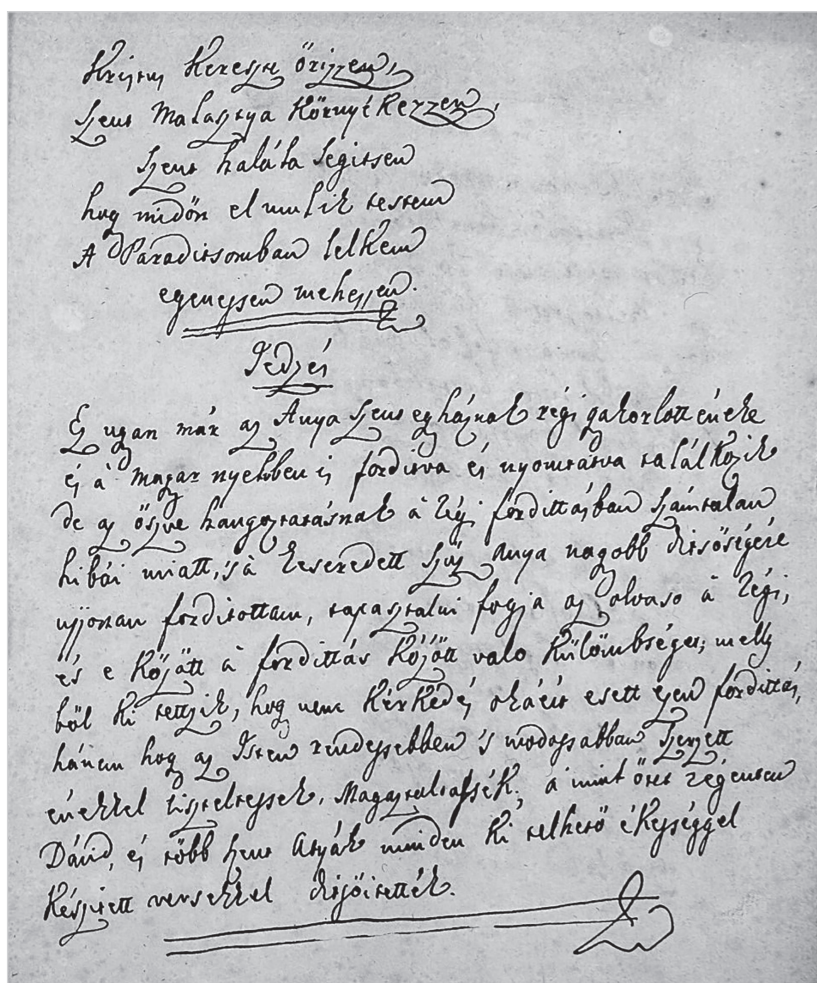 Kristus Keresztye őrizzen,
Szent Malasztya Környékezzen,
Szent halála segitsen
hog midőn el mulik testem
A Paraditsomban lelkem
egenessen mehessen.
Jedzés
Ez ugan már az Anya Szent egyháznak régi gakorlott éneke
és á magar nyelvben is forditva és nyomtatva találkozik
de az öszve hangoztatásnak á régi fordittásban számtalan
hibái miatt, 's à keseredett Szűz Anya nagobb ditsőségére
ujjonan forditottam, tapasztalni fogja az olvaso à régi,
és e között à fordittás között valo külömbséget; melly
ből ki tettzik, hog nem kérkedés okáért esett ezen fordittás,
hánem hog az Isten rendessebben 's modossabban szerzett
énekkel tiszteltessek, Magasztaltassék; á mint őtet régenten
Dávid, és több szent Atyák minden ki telhető ékességgel
készitett versekkel ditsőitették.